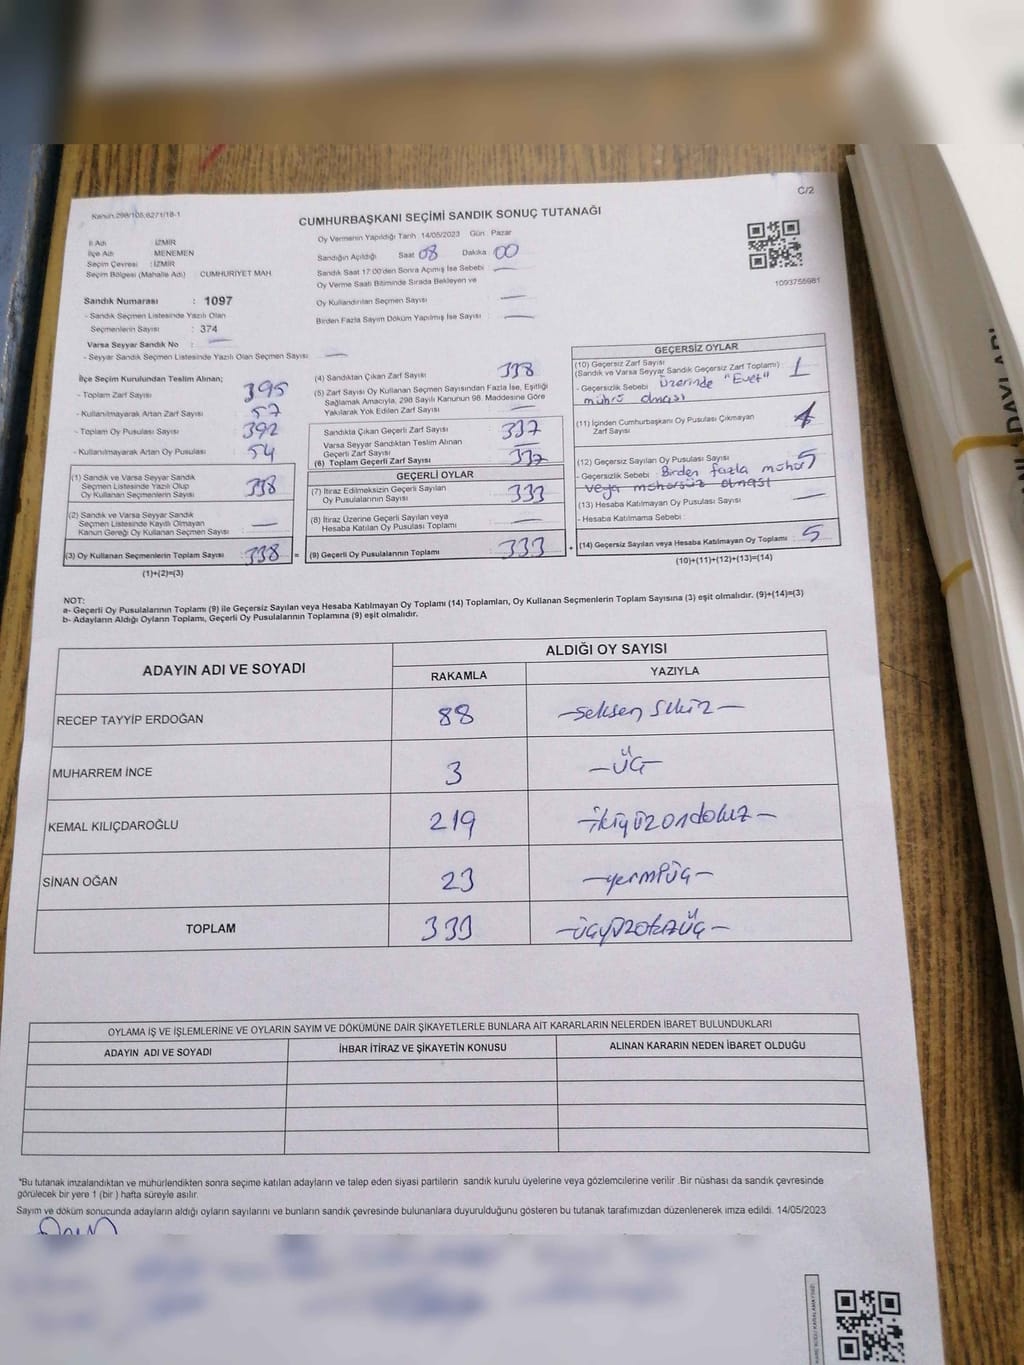 C/2
Kanun.298/105,6271/18-1
CUMHURBAŞKANI SEÇİMİ SANDIK SONUÇ TUTANAĞI
İl Adı : İZMİR
İlçe Adı : MENEMEN
Seçim Çevresi : İZMİR
Seçim Bölgesi (Mahalle Adı) : CUMHURİYET MAH.
Sandık Numarası : 1097
- Sandık Seçmen Listesinde Yazılı Olan
Seçmenlerin Sayısı : 374
Varsa Seyyar Sandık No : —
- Seyyar Sandık Seçmen Listesinde Yazılı Olan Seçmen Sayısı : —
Oy Vermenin Yapıldığı Tarih 14/05/2023 Gün Pazar
Sandığın Açıldığı Saat 08 Dakika 00
Sandık Saat 17:00'den Sonra Açımış İse Sebebi : —
Oy Verme Saati Bitiminde Sırada Bekleyen ve
Oy Kullandırılan Seçmen Sayısı : —
Birden Fazla Sayım Döküm Yapılmış İse Sayısı : —
1093755981
İlçe Seçim Kurulundan Teslim Alınan;
- Toplam Zarf Sayısı : 395
- Kullanılmayarak Artan Zarf Sayısı : 57
- Toplam Oy Pusulası Sayısı : 392
- Kullanılmayarak Artan Oy Pusulası : 54
(1) Sandık ve Varsa Seyyar Sandık
Seçmen Listesinde Yazılı Olup
Oy Kullanan Seçmenlerin Sayısı : 338
(2) Sandık ve Varsa Seyyar Sandık
Seçmen Listesinde Kayıtlı Olmayan
Kanun Gereği Oy Kullanan Seçmen Sayısı : —
(3) Oy Kullanan Seçmenlerin Toplam Sayısı : 338 =
(1)+(2)=(3)
(4) Sandıktan Çıkan Zarf Sayısı : 338
(5) Zarf Sayısı Oy Kullanan Seçmen Sayısından Fazla İse, Eşitliği
Sağlamak Amacıyla, 298 Sayılı Kanunun 98. Maddesine Göre
Yakılarak Yok Edilen Zarf Sayısı : —
Sandıkla Çıkan Geçerli Zarf Sayısı : 337
Varsa Seyyar Sandıktan Teslim Alınan
Geçerli Zarf Sayısı : —
(6) Toplam Geçerli Zarf Sayısı : 337
GEÇERLİ OYLAR
(7) İtiraz Edilmeksizin Geçerli Sayılan
Oy Pusulalarının Sayısı : 333
(8) İtiraz Üzerine Geçerli Sayılan veya
Hesaba Katılan Oy Pusulası Toplamı : —
(9) Geçerli Oy Pusulalarının Toplamı : 333 +
GEÇERSİZ OYLAR
(10) Geçersiz Zarf Sayısı
(Sandık ve Varsa Seyyar Sandık Geçersiz Zarf Toplamı) : 1
- Geçersizlik Sebebi : Üzerinde "Evet"
mührü olması
(11) İçinden Cumhurbaşkanı Oy Pusulası Çıkmayan
Zarf Sayısı :
(12) Geçersiz Sayılan Oy Pusulası Sayısı : 5
- Geçersizlik Sebebi : Birden fazla mühür
veya mühürsüz olması
(13) Hesaba Katılmayan Oy Pusulası Sayısı : —
- Hesaba Katılmama Sebebi :
(14) Geçersiz Sayılan veya Hesaba Katılmayan Oy Toplamı : 5
(10)+(11)+(12)+(13)=(14)
NOT:
a- Geçerli Oy Pusulalarının Toplamı (9) ile Geçersiz Sayılan veya Hesaba Katılmayan Oy Toplamı (14) Toplamları, Oy Kullanan Seçmenlerin Toplam Sayısına (3) eşit olmalıdır. (9)+(14)=(3)
b- Adayların Aldığı Oyların Toplamı, Geçerli Oy Pusulalarının Toplamına (9) eşit olmalıdır.
ADAYIN ADI VE SOYADI
ALDIĞI OY SAYISI
RAKAMLA YAZIYLA
RECEP TAYYİP ERDOĞAN 88 —seksen sekiz—
MUHARREM İNCE 3 —üç—
KEMAL KILIÇDAROĞLU 219 —ikiyüzondokuz—
SİNAN OĞAN 23 —yirmiüç—
TOPLAM 333 —üçyüzotuzüç—
OYLAMA İŞ VE İŞLEMLERİNE VE OYLARIN SAYIM VE DÖKÜMÜNE DAİR ŞİKAYETLERLE BUNLARA AİT KARARLARIN NELERDEN İBARET BULUNDUKLARI
ADAYIN ADI VE SOYADI İHBAR İTİRAZ VE ŞİKAYETİN KONUSU ALINAN KARARIN NEDEN İBARET OLDUĞU
*Bu tutanak imzalandıktan ve mühürlendikten sonra seçime katılan adayların ve talep eden siyasi partilerin sandık kurulu üyelerine veya gözlemcilerine verilir .Bir nüshası da sandık çevresinde
görülecek bir yere 1 (bir ) hafta süreyle asılır.
Sayım ve döküm sonucunda adayların aldığı oyların sayılarını ve bunların sandık çevresinde bulunanlara duyurulduğunu gösteren bu tutanak tarafımızdan düzenlenerek imza edildi. 14/05/2023